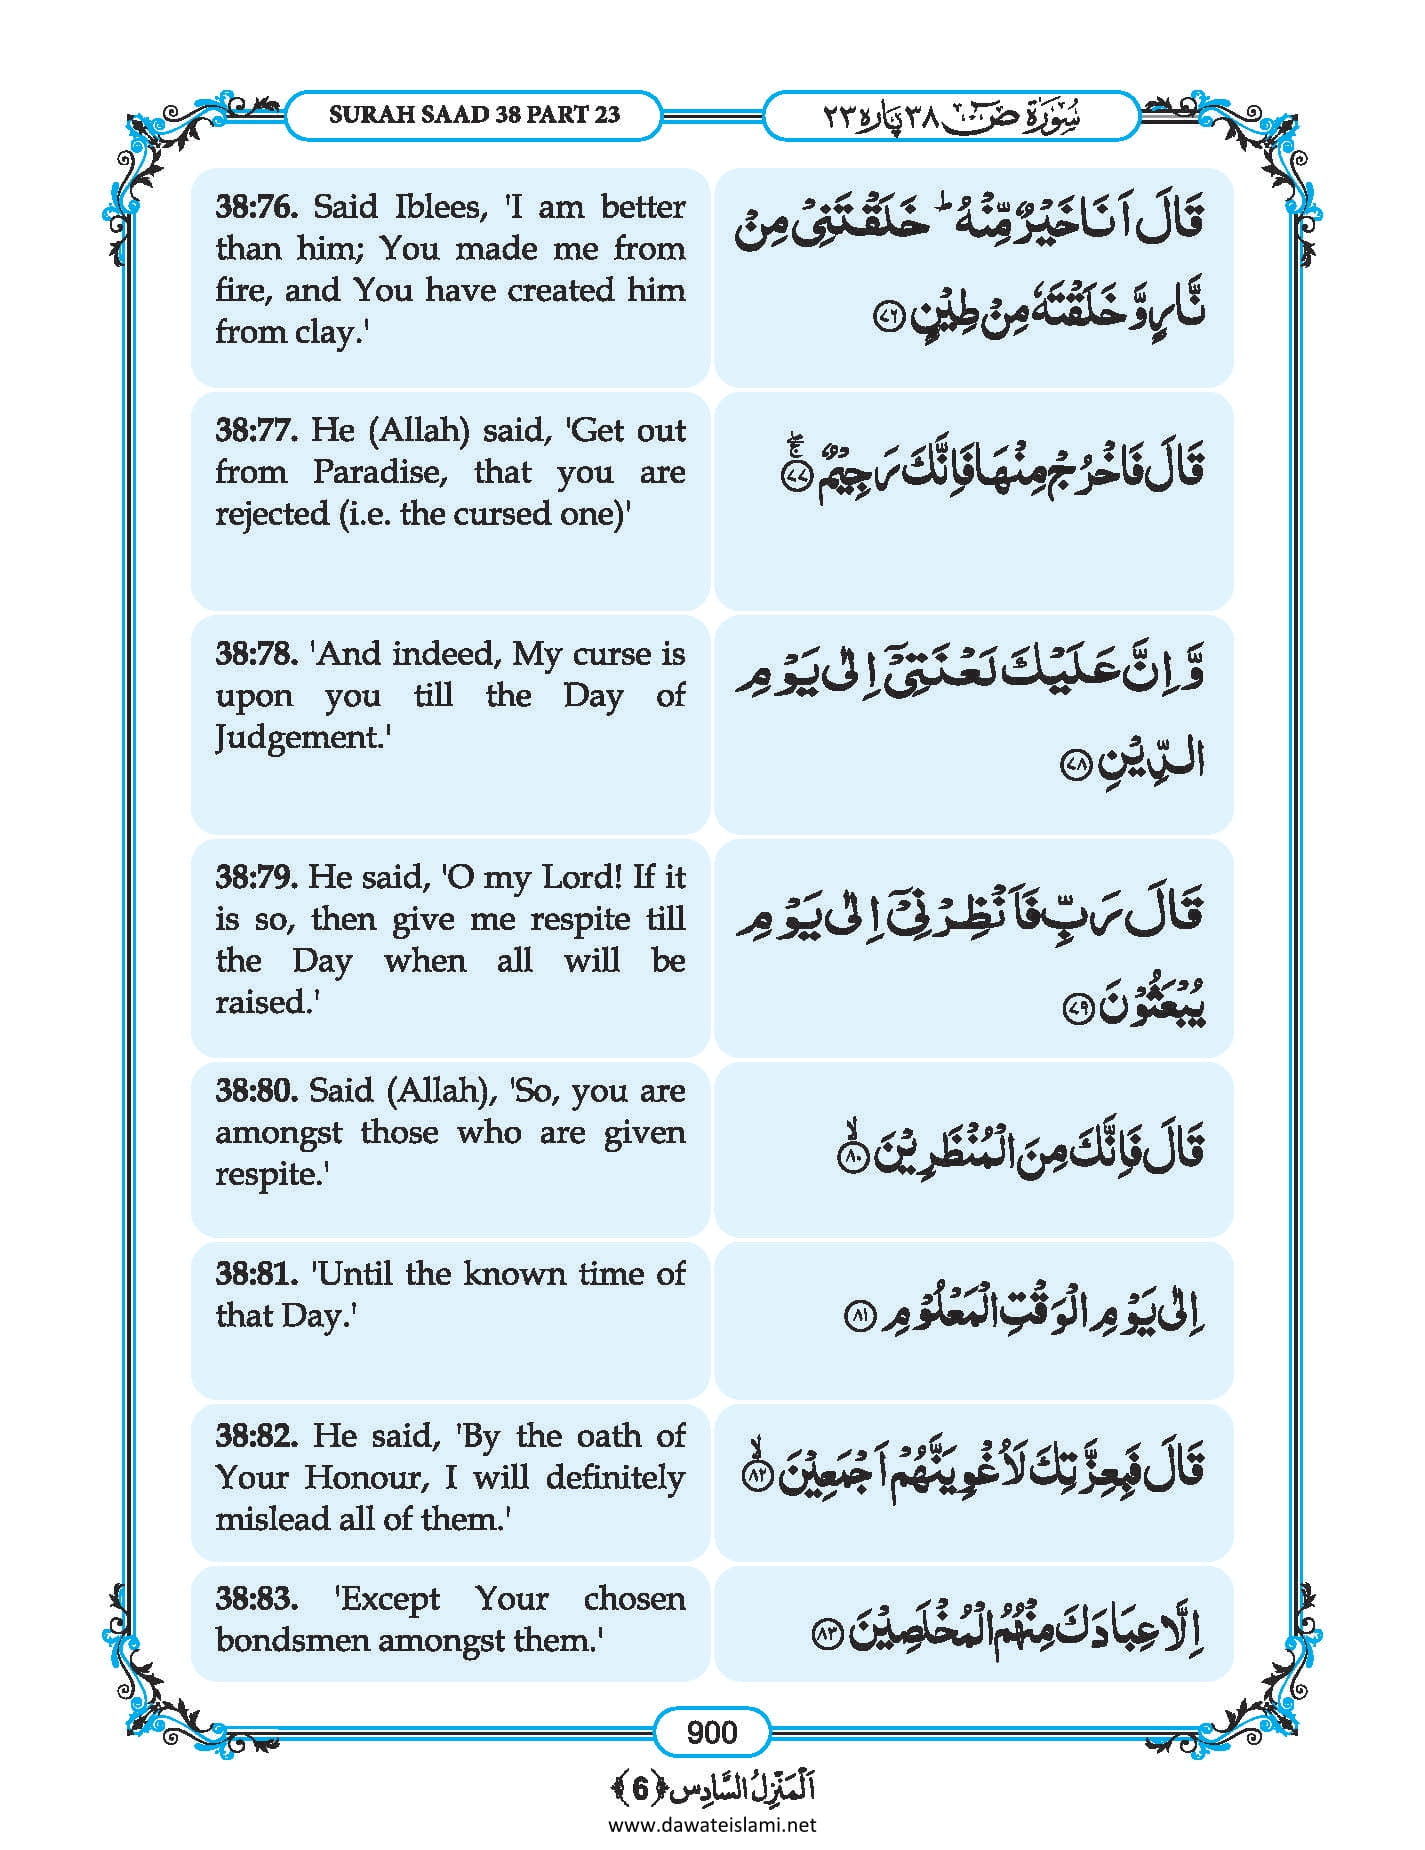 SURAH SAAD 38 PART 23
سُوْرَةُ صٓ ٣٨ پاره ٢٣
38:76. Said Iblees, 'I am better
than him; You made me from
fire, and You have created him
from clay.'
قَالَ اَنَا خَيْرٌ مِّنْهُ ؕ خَلَقْتَنِيْ مِنْ
نَّارٍ وَّ خَلَقْتَهٗ مِنْ طِيْنٍ ﴿۷۶﴾
38:77. He (Allah) said, 'Get out
from Paradise, that you are
rejected (i.e. the cursed one)'
قَالَ فَاخْرُجْ مِنْهَا فَاِنَّكَ رَجِيْمٌ ﴿۷۷﴾ۚۖ
38:78. 'And indeed, My curse is
upon you till the Day of
Judgement.'
وَّ اِنَّ عَلَيْكَ لَعْنَتِيْۤ اِلٰى يَوْمِ
الدِّيْنِ ﴿۷۸﴾
38:79. He said, 'O my Lord! If it
is so, then give me respite till
the Day when all will be
raised.'
قَالَ رَبِّ فَاَنْظِرْنِيْۤ اِلٰى يَوْمِ
يُبْعَثُوْنَ ﴿۷۹﴾
38:80. Said (Allah), 'So, you are
amongst those who are given
respite.'
قَالَ فَاِنَّكَ مِنَ الْمُنْظَرِيْنَ ﴿۸۰﴾ۙ
38:81. 'Until the known time of
that Day.'
اِلٰى يَوْمِ الْوَقْتِ الْمَعْلُوْمِ ﴿۸۱﴾
38:82. He said, 'By the oath of
Your Honour, I will definitely
mislead all of them.'
قَالَ فَبِعِزَّتِكَ لَاُغْوِيَنَّهُمْ اَجْمَعِيْنَ ﴿۸۲﴾ۙ
38:83. 'Except Your chosen
bondsmen amongst them.'
اِلَّا عِبَادَكَ مِنْهُمُ الْمُخْلَصِيْنَ ﴿۸۳﴾
900
اَلْمَنْزِلُ السَّادِس ﴿6﴾
www.dawateislami.net